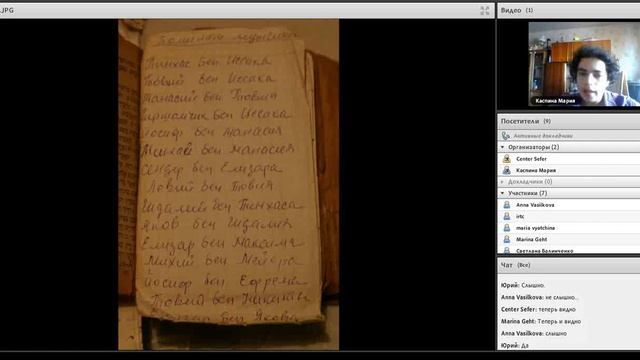 .JPG
Пинхас бен Иссака
Товий бен Иссака
Танасий бен Товия
Гершомчик бен Иссака
Иосиф бен Манасия
Михаил бен Манасия
Сендер бен Елизара
Ловий бен Товия
Гидалий бен Пинхаса
Яков бен Гидалия
Елизар бен Максима
Михий бен Мейера
Иосиф бен Ефрема
Товий бен
бен Якова
Видео (1)
Каспина Мария
Посетители (9)
Активные докладчики
Организаторы (2)
Center Sefer
Каспина Мария
Докладчики (0)
Участники (7)
Anna Vasilkova
irtc
maria vyatchina
Marina Geht
Светлана Валинченко
Чат (Все)
Юрий: Слышно.
Anna Vasilkova: не слышно..
Center Sefer: теперь видно
Marina Geht: Теперь и видно
Anna Vasilkova: слышно
Юрий: Да